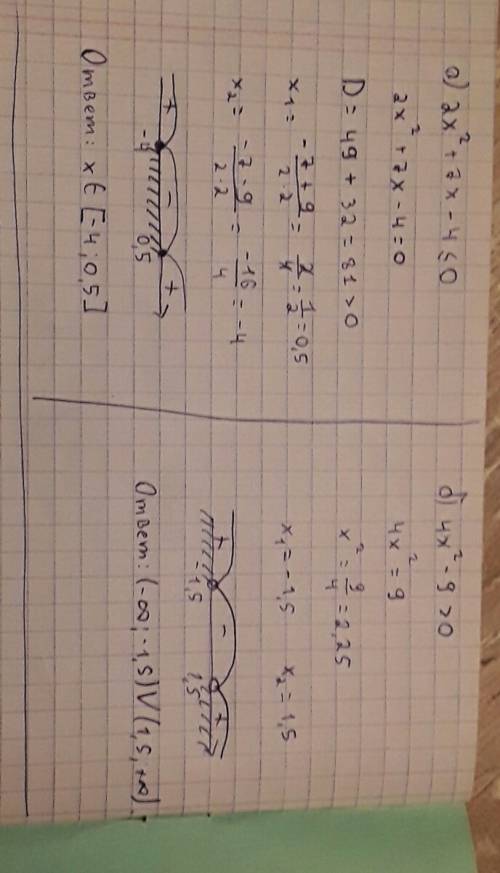 а) 2x² + 7x - 4 ≤ 0
2x² + 7x - 4 = 0
D = 49 + 32 = 81 > 0
x₁ = (-7 + 9)/(2·2) = 2/4 = 1/2 = 0,5
x₂ = (-7 - 9)/(2·2) = -16/4 = -4
+ - +
-4 0,5
Ответ: x ∈ [-4; 0,5]
б) 4x² - 9 > 0
4x² = 9
x² = 9/4 = 2,25
x₁ = -1,5 x₂ = 1,5
+ - +
-1,5 1,5
Ответ: (-∞; -1,5) V (1,5; +∞).